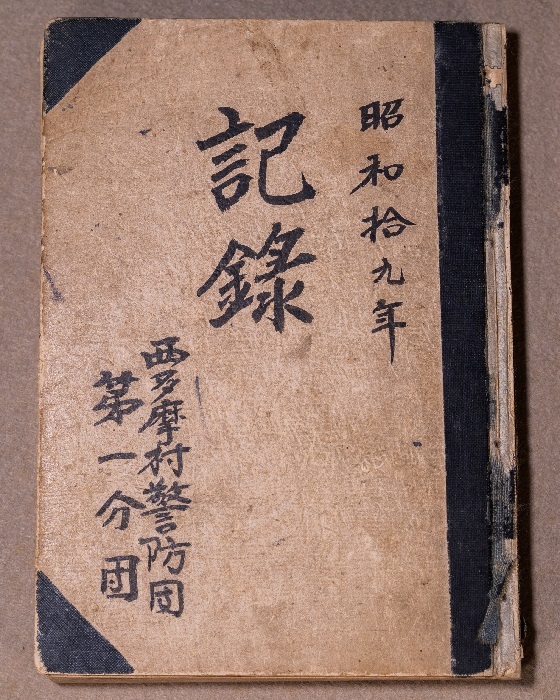 昭和拾九年
記錄
西多摩村警防団
第一分团